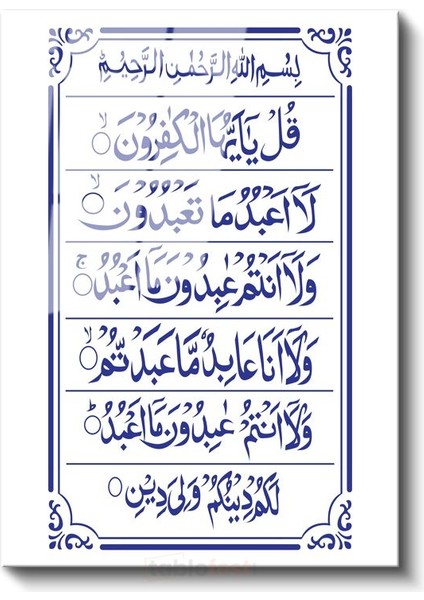 بِسْمِ اللهِ الرَّحْمٰنِ الرَّحِيْمِ
قُلْ يٰۤاَيُّهَا الْكٰفِرُوْنَ ۙ
لَاۤ اَعْبُدُ مَا تَعْبُدُوْنَ ۙ
وَلَاۤ اَنْتُمْ عٰبِدُوْنَ مَاۤ اَعْبُدُ ۚ
وَلَاۤ اَنَا عَابِدٌ مَّا عَبَدْتُّمْ ۙ
وَلَاۤ اَنْتُمْ عٰبِدُوْنَ مَاۤ اَعْبُدُ ؕ
لَكُمْ دِيْنُكُمْ وَلِيَ دِيْنِ